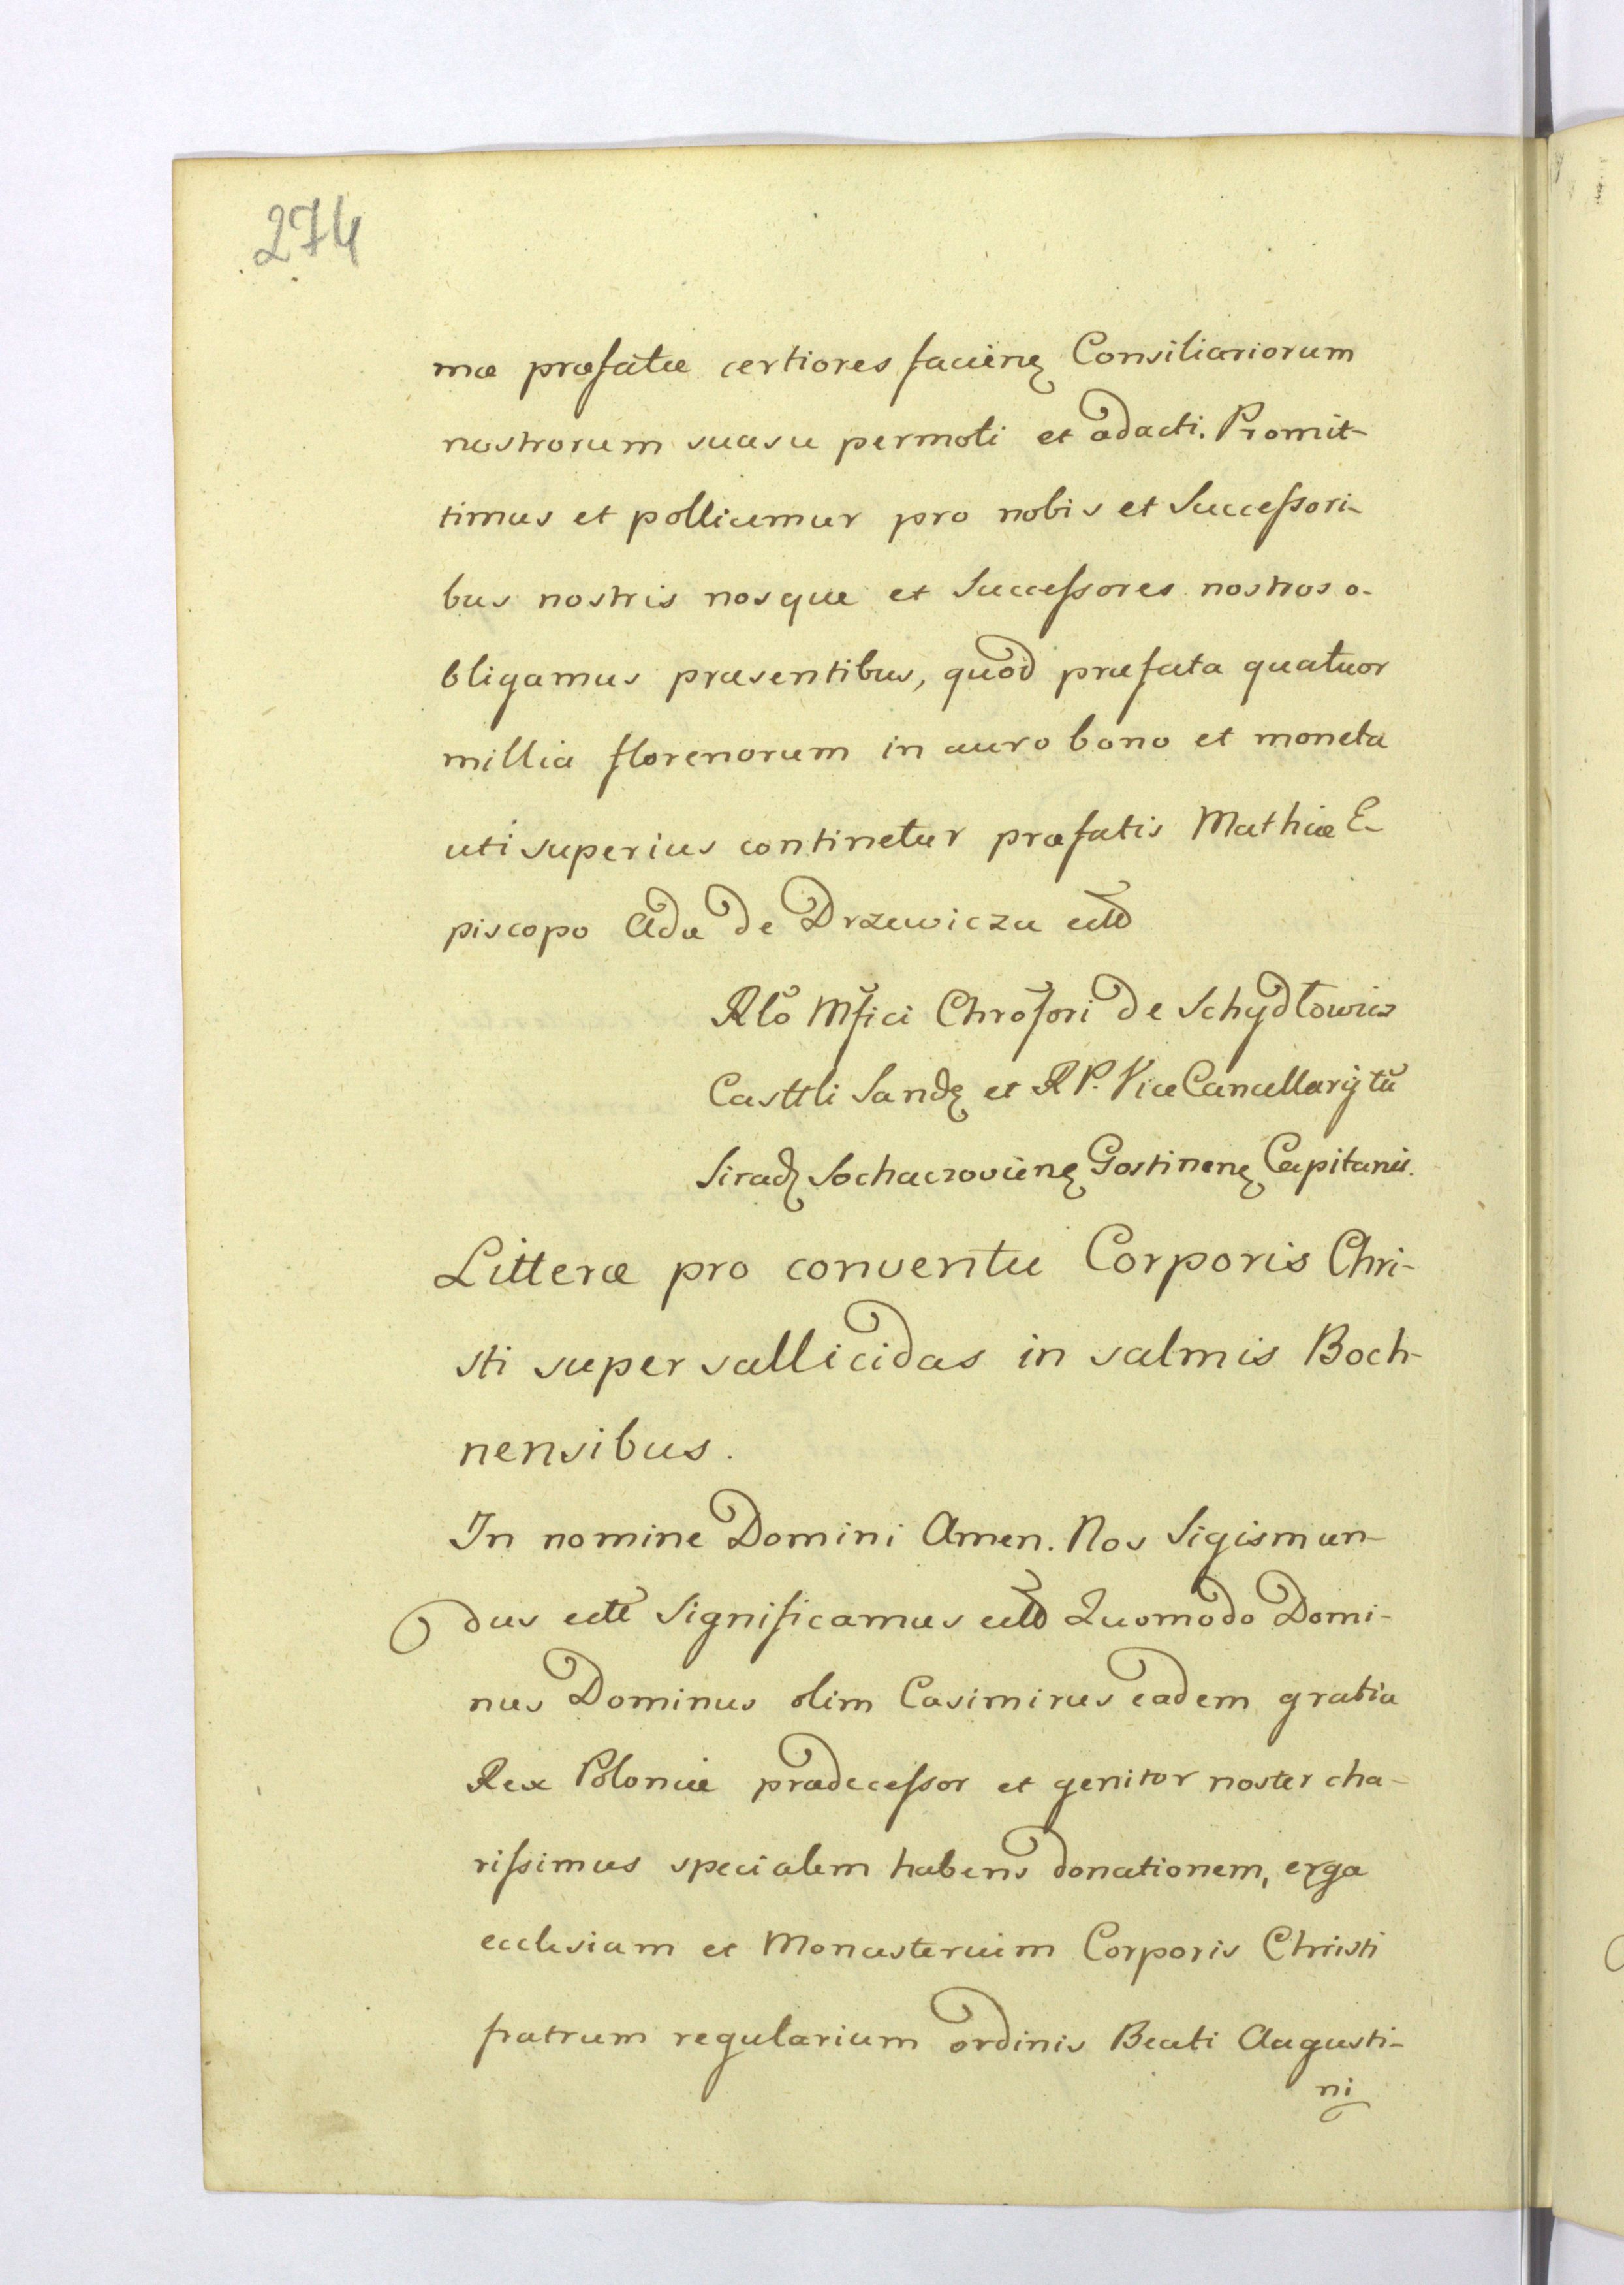 274
mæ præfatæ certiores facienȩ Consiliariorum
nostrorum suasu permoti et adacti. Promit-
timus et pollicemur pro nobis et Succeſsori-
bus nostris nosque et Succeſsores nostros o-
bligamus præsentibus, quod præfata quatuor
millia florenorum in auro bono et moneta
uti superius continetur præfatis Mathiæ E-
piscopo Adæ de Drzewicza
Rlo Mfici Chrofori de Schydłowicz
Casttli Sandȩ et R P. ViceCancellarij tū
Siradȩ Sochaczovienȩ Gostinenȩ Capitanei.
Litteræ pro conventu Corporis Chri-
sti super sallicidas in salmis Boch-
nensibus.
In nomine Domini Amen. Nos Sigismun-
dus ectt Significamus Quomodo Domi-
nus Dominus olim Casimirus eadem gratia
Rex Poloniæ prædeceſsor et genitor noster cha-
riſsimus specialem habens donationem, erga
ecclesiam et Monasterium Corporis Christi
fratrum regularium ordinis Beati Augusti-
ni